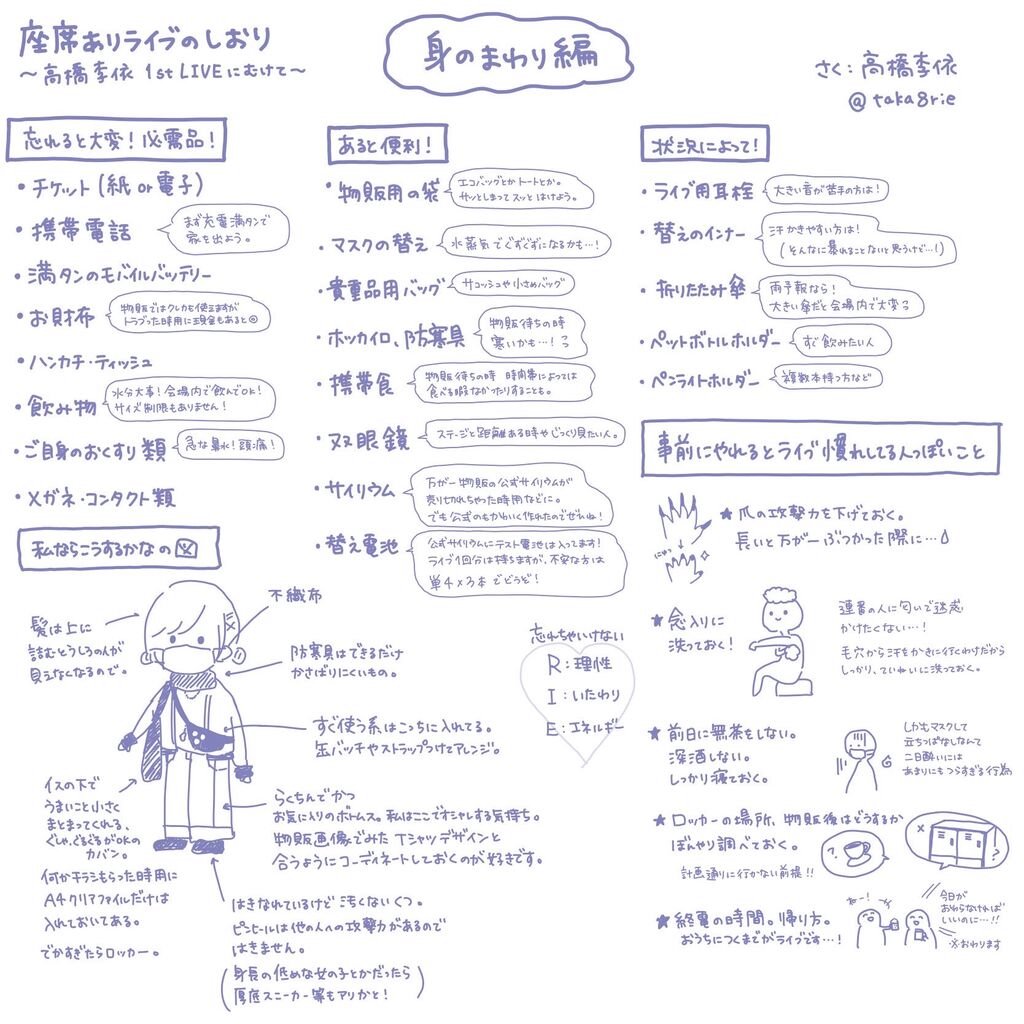 座席ありライブのしおり
～高橋李依 1st LIVEにむけて～
身のまわり編
さく：高橋李依
@taka8rie
忘れると大変！必需品！
・チケット（紙or電子）
・携帯電話
まず充電満タンで
家を出よう。
・満タンのモバイルバッテリー
・お財布
物販ではクレカも使えますが
トラブった時用に現金もあると◎
・ハンカチ・ティッシュ
・飲み物
水分大事！会場内で飲んでOK！
サイズ制限もありません！
・ご自身のおくすり類
急な鼻水！頭痛！
・メガネ・コンタクト類
あると便利！
・物販用の袋
エコバッグとかトートとか。
サッとしまってスッとはけよう。
・マスクの替え
水蒸気でぐずぐずになるかも…！
・貴重品用バッグ
サコッシュや小さめバッグ
・ホッカイロ、防寒具
物販待ちの時
寒いかも…！
・携帯食
物販待ちの時 時間帯によっては
食べる暇なかったりすることも。
・双眼鏡
ステージと距離ある時やじっくり見たい人。
・サイリウム
万が一物販の公式サイリウムが
売り切れちゃった時用などに。
でも公式のもかわいく作れたのでぜひね！
・替え電池
公式サイリウムにテスト電池は入ってます！
ライブ1回分は持ちますが、不安な方は
単4×3本でどうぞ！
状況によって！
・ライブ用耳栓
大きい音が苦手の方は！
・替えのインナー
汗かきやすい方は！
（そんなに暴れることないと思うけど…！）
・折りたたみ傘
雨予報なら！
大きい傘だと会場内で大変っ
・ペットボトルホルダー
すぐ飲みたい人
・ペンライトホルダー
複数本持つ方など
事前にやれるとライブ慣れしてる人っぽいこと
★爪の攻撃力を下げておく。
長いと万が一ぶつかった際に…
にゅっ
★念入りに
洗っておく！
連番の人に匂いで迷惑
かけたくない…！
毛穴から汗をかきに行くわけだから
しっかり、ていねいに洗っておく。
★前日に無茶をしない。
深酒しない。
しっかり寝ておく。
しかもマスクして
立ちっぱなしなんて
二日酔いには
あまりにもつらすぎる行為
★ロッカーの場所、物販後はどうするか
ぼんやり調べておく。
計画通りに行かない前提！！
★終電の時間。帰り方。
おうちにつくまでがライブです…！
ねー！
今日が
おわらなければ
いいのに…！！
※おわります
私ならこうするかなの図
髪は上に
詰むとうしろの人が
見えなくなるので。
不織布
防寒具はできるだけ
かさばりにくいもの。
すぐ使う系はこっちに入れてる。
缶バッチやストラップつけてアレンジ。
イスの下で
うまいこと小さく
まとまってくれる、
ぐしゃ、ぐるぐるがOKの
カバン。
何かチラシもらった時用に
A4クリアファイルだけは
入れておいてある。
でかすぎたらロッカー。
らくちんでかつ
お気に入りのボトムス。私はここでオシャレする気持ち。
物販画像でみたTシャツデザインと
合うようにコーディネートしておくのが好きです。
はきなれているけど汚くないくつ。
ピンヒールは他の人への攻撃力があるので
はきません。
（身長の低めな女の子とかだったら
厚底スニーカー等もアリかと！）
忘れちゃいけない
R：理性
I：いたわり
E：エネルギー